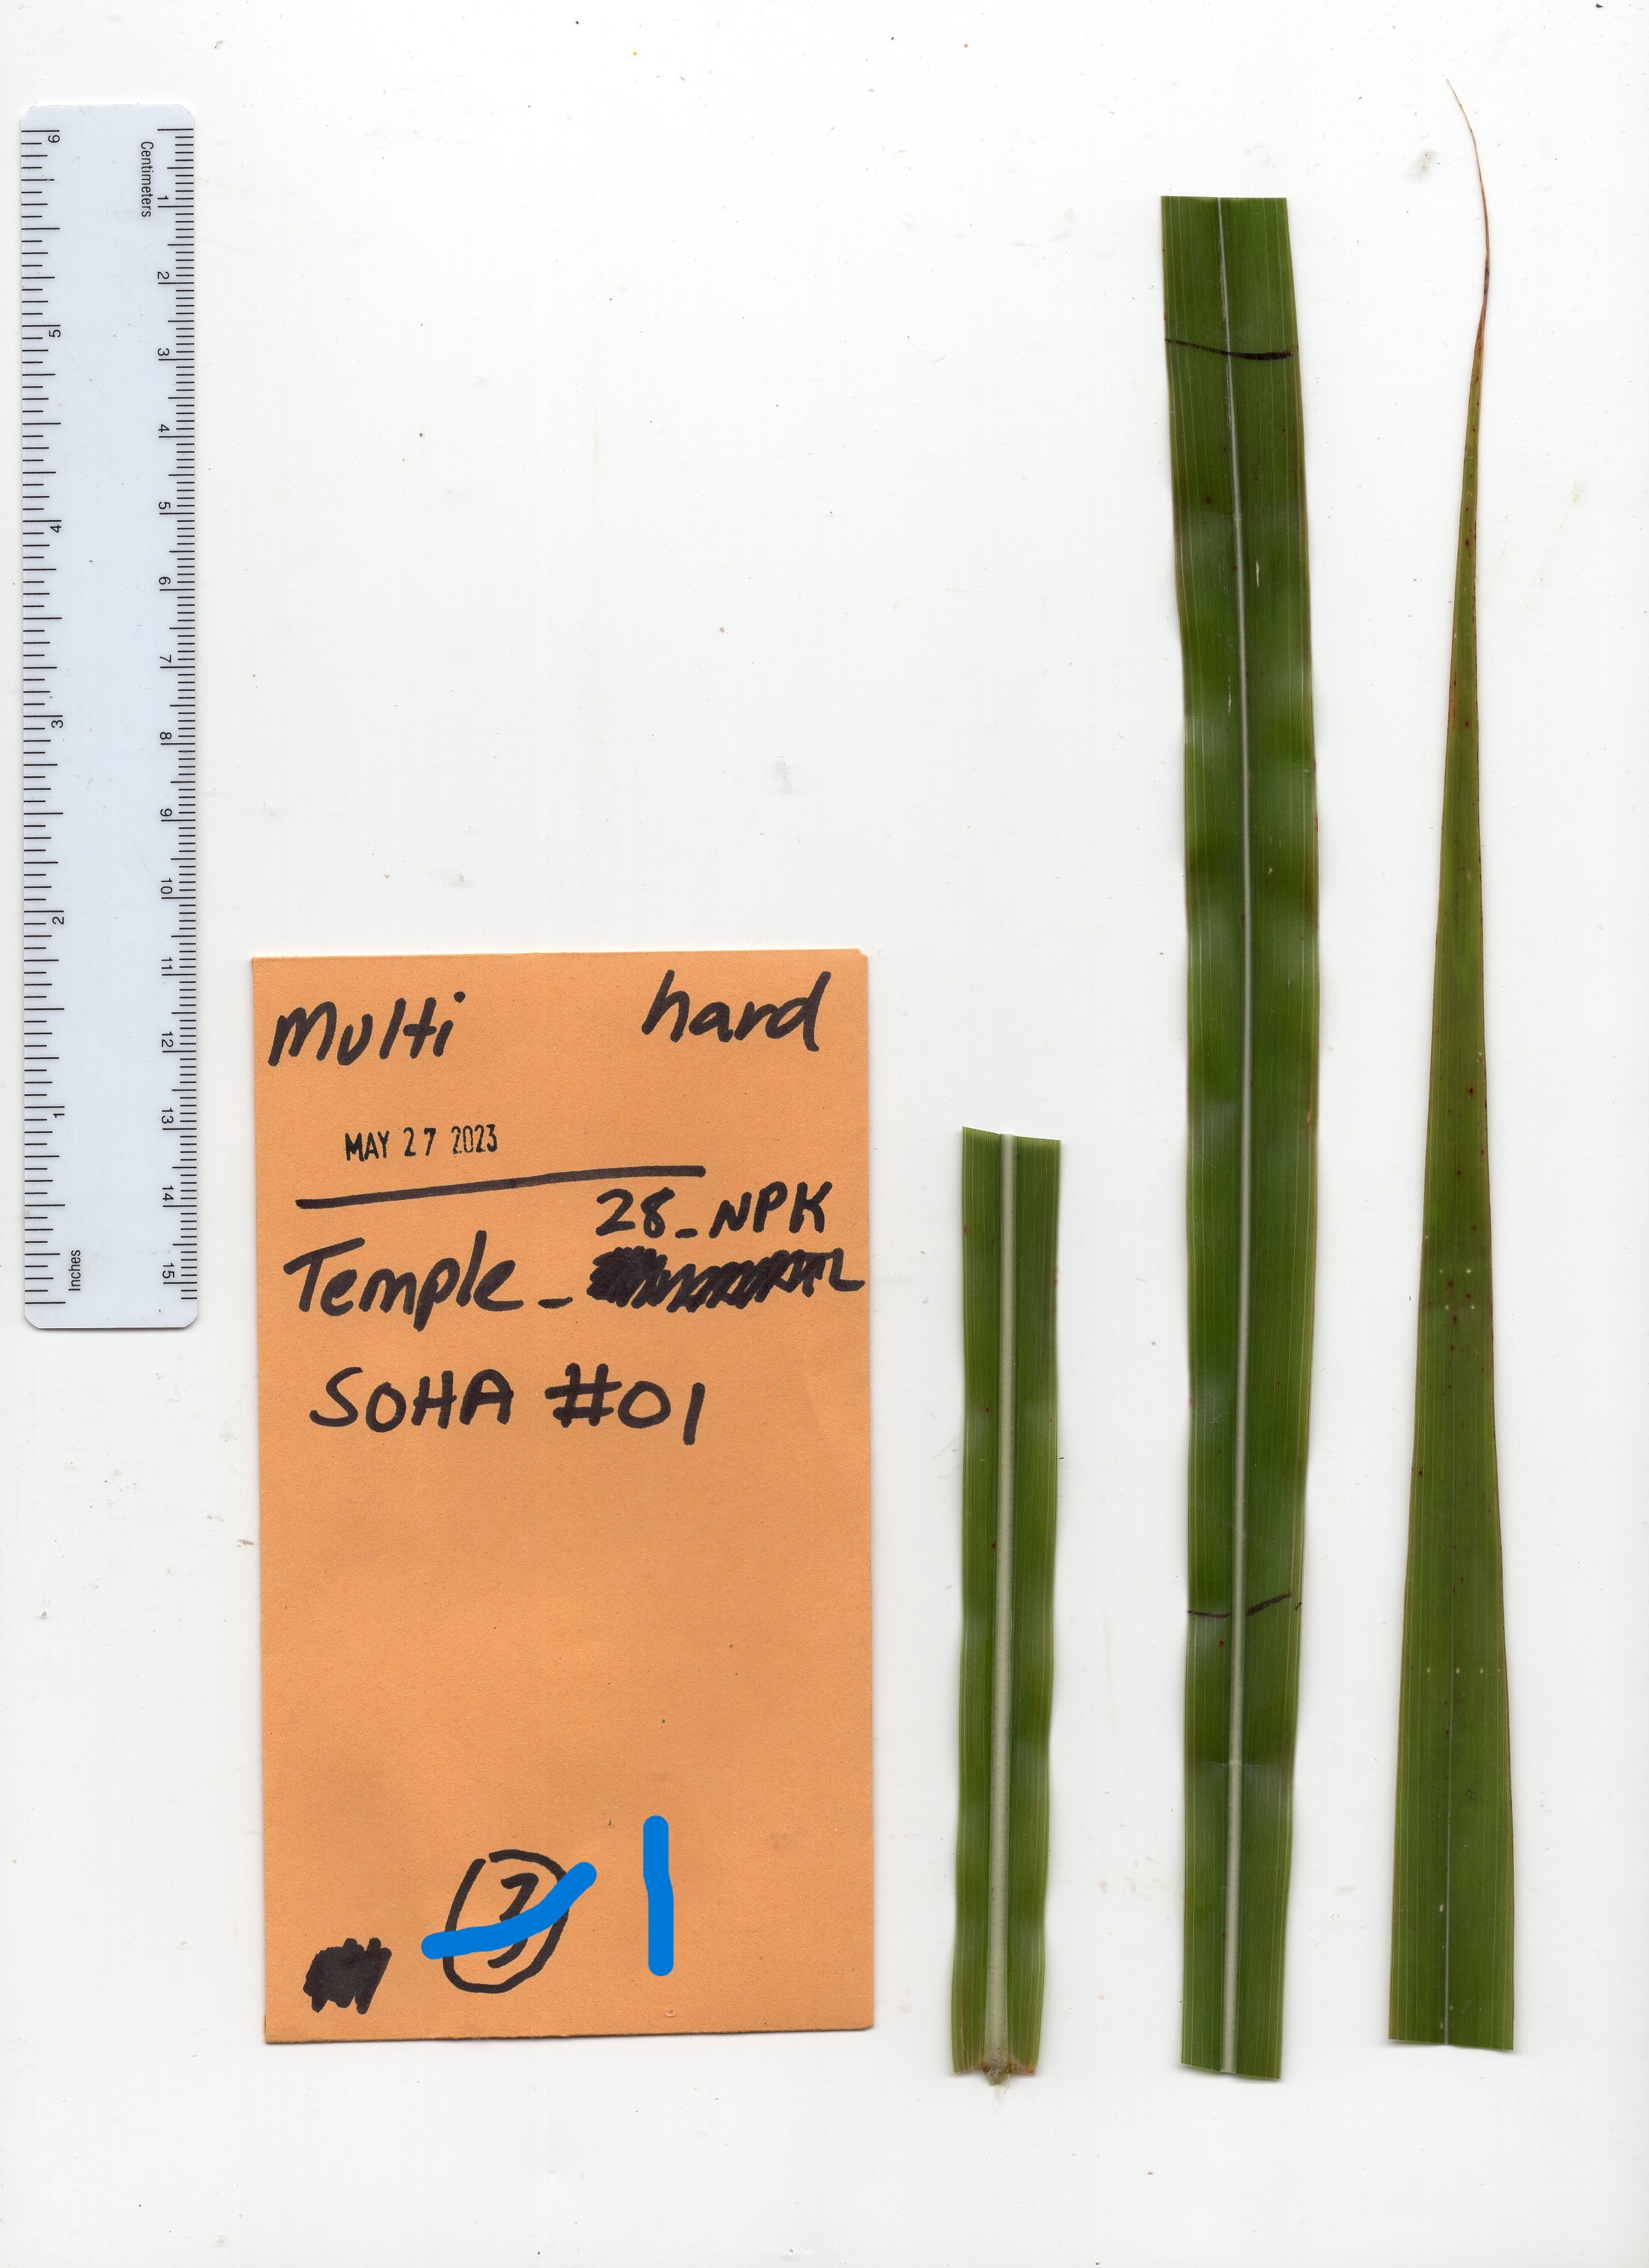 Centimeters
1
2
3
4
5
6
7
8
9
10
11
12
13
14
15
6
5
4
3
2
1
Inches
Multi hard
MAY 27 2023
28_NPK
Temple_
SOHA #01
3
1